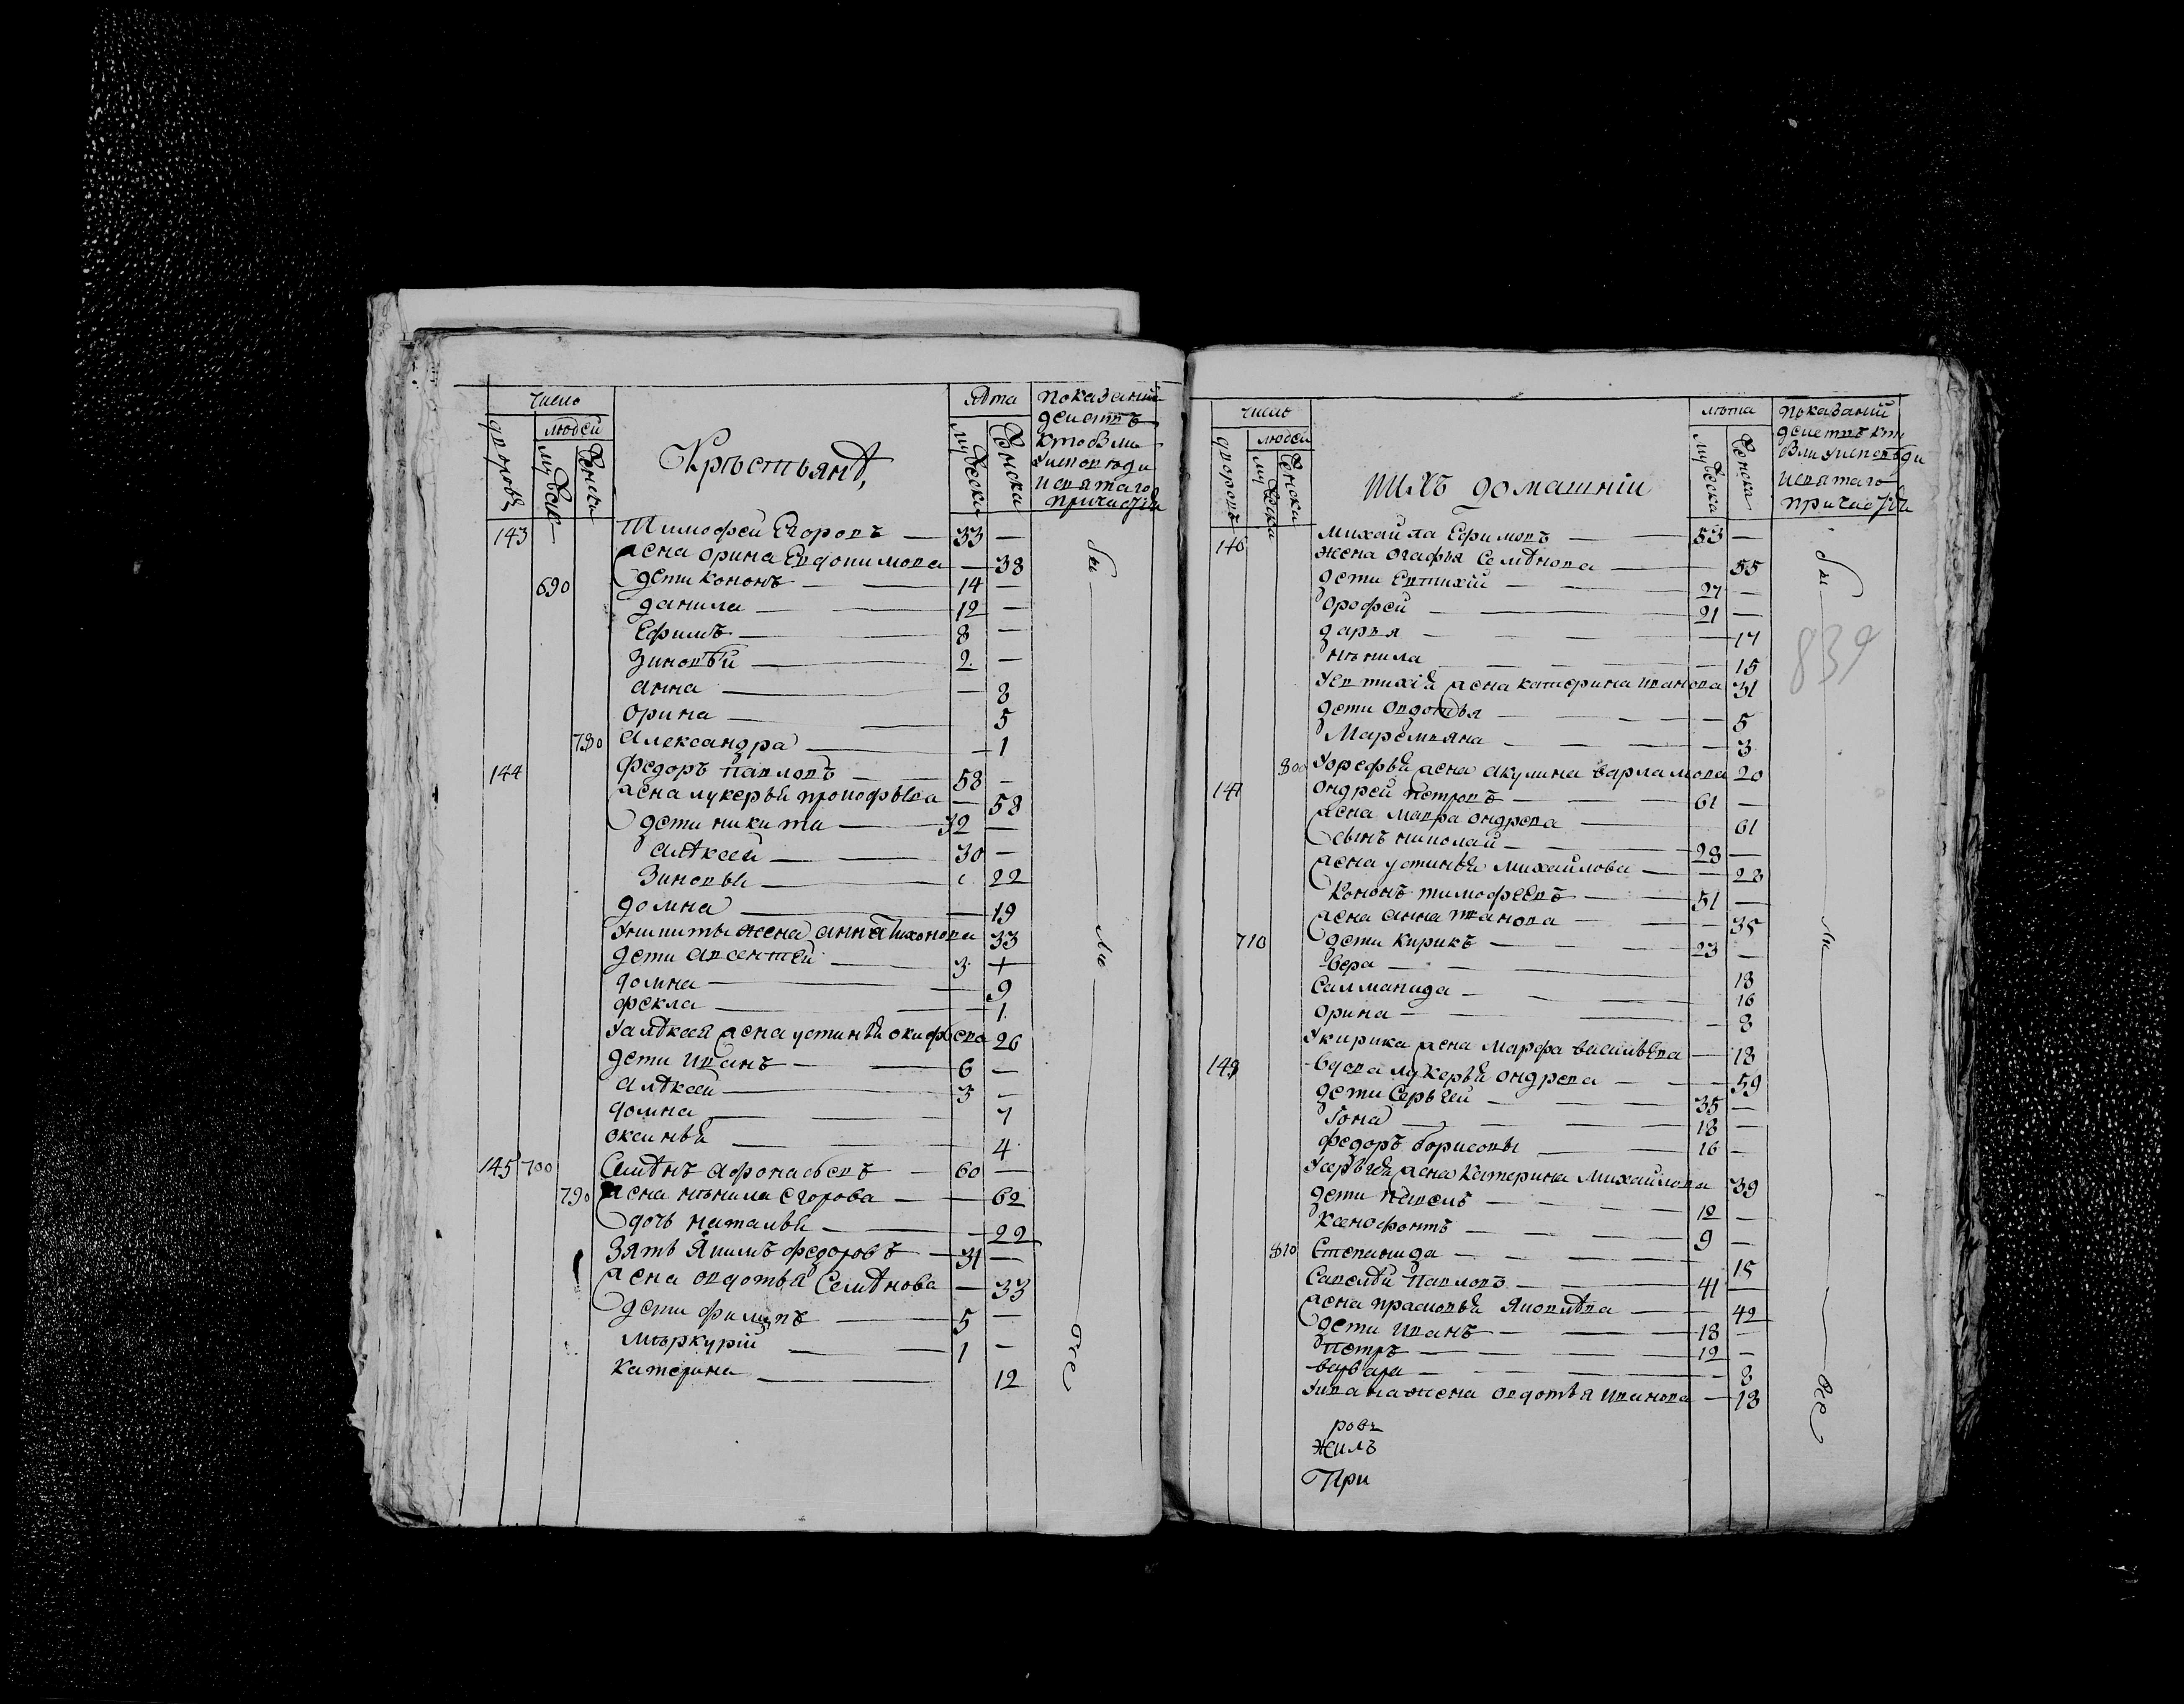 число
людей
дворовъ
мужеск
женски
Крѣстьянъ,
лѣта
мужески
женски
показаний
действъ
кто был
у исповѣди
и святаго
причастия
143 Тимофей Егоровъ 33 —
жена орина Евдокимова — 38
690 дети кононъ 14 —
данила 12 —
Ефимъ 8 —
Зиновѣй 2 —
анна — 8
орина 5
780 Александра — 1
144 Федоръ павловъ 58 —
жена лукерья — 58
дети никита 32 —
алѣксей 30 —
Зиновьи 22
домна — 19
У никиты жена анна Тихонова 33
дети Арсентей 3 +
домна 9
фекла — 1
У алѣксея жена устинья 26
дети иванъ 6 —
алѣксей 3 —
домна 7
оксинья 4
145 700 Семѣнъ афонасьевъ 60 —
790 жена нѣнила Егорова — 62
дочь наталья — 22
Зять Якимъ федоровъ 31 —
жена овдотья Семѣнова — 33
дети филипъ 5 —
мѣркурий 1 —
катерина 12
бы ли все
число
людей
дворовъ
мужеска
женски
ИИХЪ домашнии
лѣта
мужеска
женска
показаний
действъ кто
был у исповѣди
и святаго
причастия
146 михайла Ефимовъ 53 —
жена огафья Семѣнова 55
дети Евтихий 27 —
дорофей 21 —
дарья — 17
нѣнила — 15
У евтихия жена катерина иванова 31
дети овдотья — 5
Маремьяна — 3
800 У дорефья жена акулина варламова 20
147 ондрей петровъ 61 —
жена мавра ондреева 61
сынъ николай 28 —
жена устинья Михайлова — 28
кононъ тимофѣевъ 51 —
жена анна иванова — 35
710 дети Кирикъ 23 —
вера 18
Салманида 16
орина — 8
У кирика жена Марфа васильева — 18
148 вдова лукерья ондреева — 59
дети Сергей 35 —
Iона 18 —
федоръ борисовы 16 —
У сергея жена катерина Михайлова 39
дети павелъ 12 —
ксенофонтъ 9 —
810 Степанида 15
Савелѣй павловъ 41 —
жена прасковья Яковлѣва — 42
дети иванъ 18 —
петръ 12 —
варвара — 8
У ивана жена овдотья иванова — 18
бы ли все
839
ровъ
жилъ
При